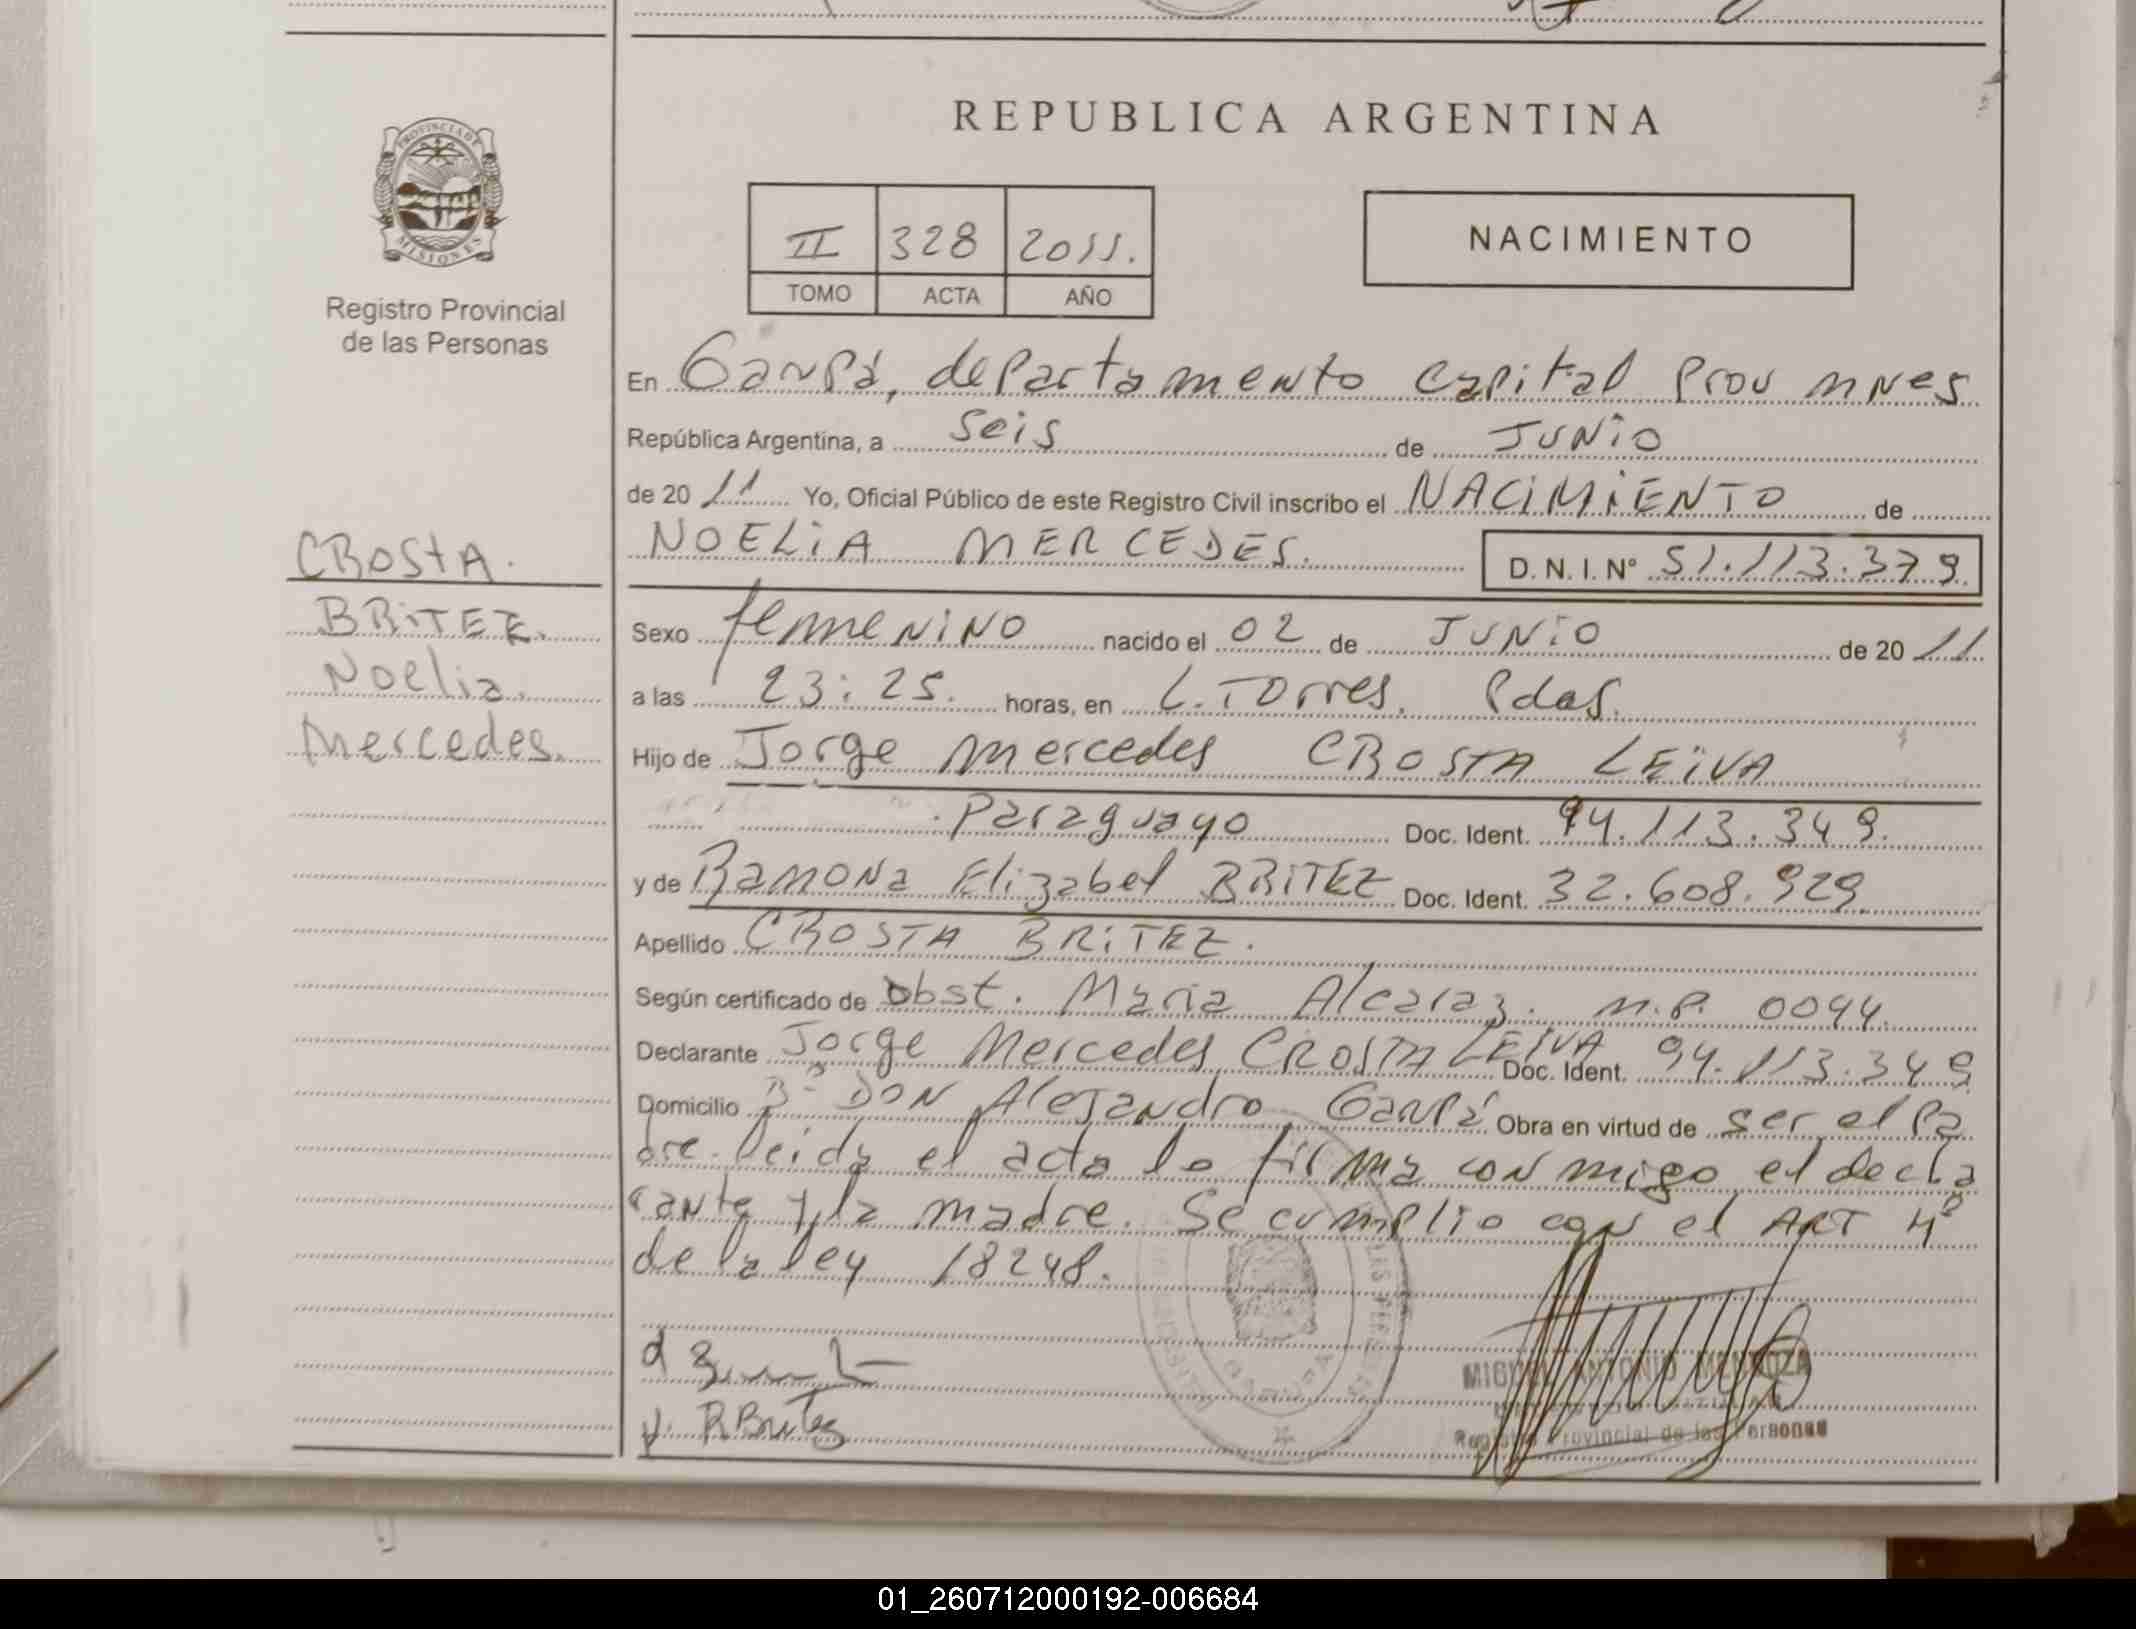 REPUBLICA ARGENTINA
PROVINCIA DE
MISIONES
Registro Provincial
de las Personas
II 328 2011.
TOMO ACTA AÑO
NACIMIENTO
En Garupá, departamento capital Prov mnes
República Argentina, a seis de JUNIO
de 20 11 Yo, Oficial Público de este Registro Civil inscribo el NACIMIENTO de
NOELIA MERCEDES. D.N.I. N° 51.113.379
CROSTA.
BRITEZ.
Noelia
Mercedes.
Sexo femenino nacido el 02 de JUNIO de 20 11
a las 23:25. horas, en L. Torres. Pdas.
Hijo de Jorge mercedes CROSTA LEIVA
Paraguayo Doc. Ident. 94.113.349.
y de Ramona Elizabet BRITEZ Doc. Ident. 32.608.929
Apellido CROSTA BRITEZ.
Según certificado de obst. Maria Alcaraz. M.P. 0044.
Declarante Jorge Mercedes CROSTA LEIVA Doc. Ident. 94.113.349
Domicilio B° DON Alejandro Garupá Obra en virtud de ser el Pa
dre. leida el acta lo firma conmigo el decla
rante y la madre. Se cumplio con el ART 4°
de la ley 18248.
R Britez
MIGUEL ANTONIO MENDOZA
Registro Provincial de las Personas
01_260712000192-006684